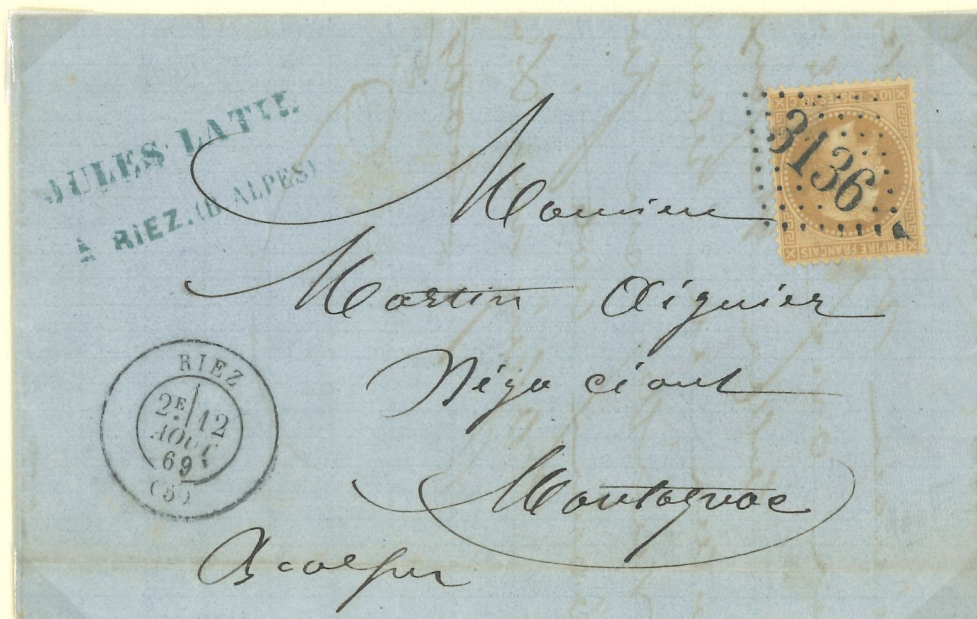 JULES LATIL
À RIEZ. (B. ALPES)
3136
EMPIRE FRANÇAIS
Monsieur
Martin Aiguier
Négociant
Montagnac
Bses alpes
RIEZ
2E 12
AOUT
69
(5)